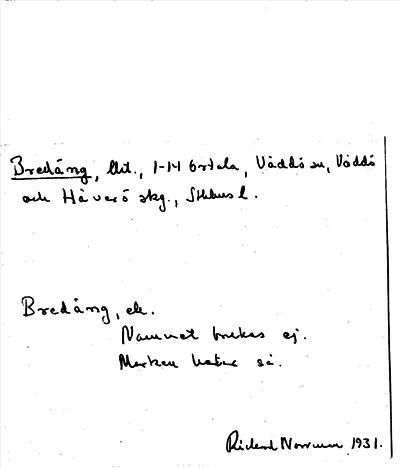 Bredäng, lht., 1-14 Ortala, Väddö sn, Väddö
och Häverö skg., Sthlms l.
Bredäng, ek.
Namnet brukas ej.
Marken heter så.
Rickard Norrman 1931.